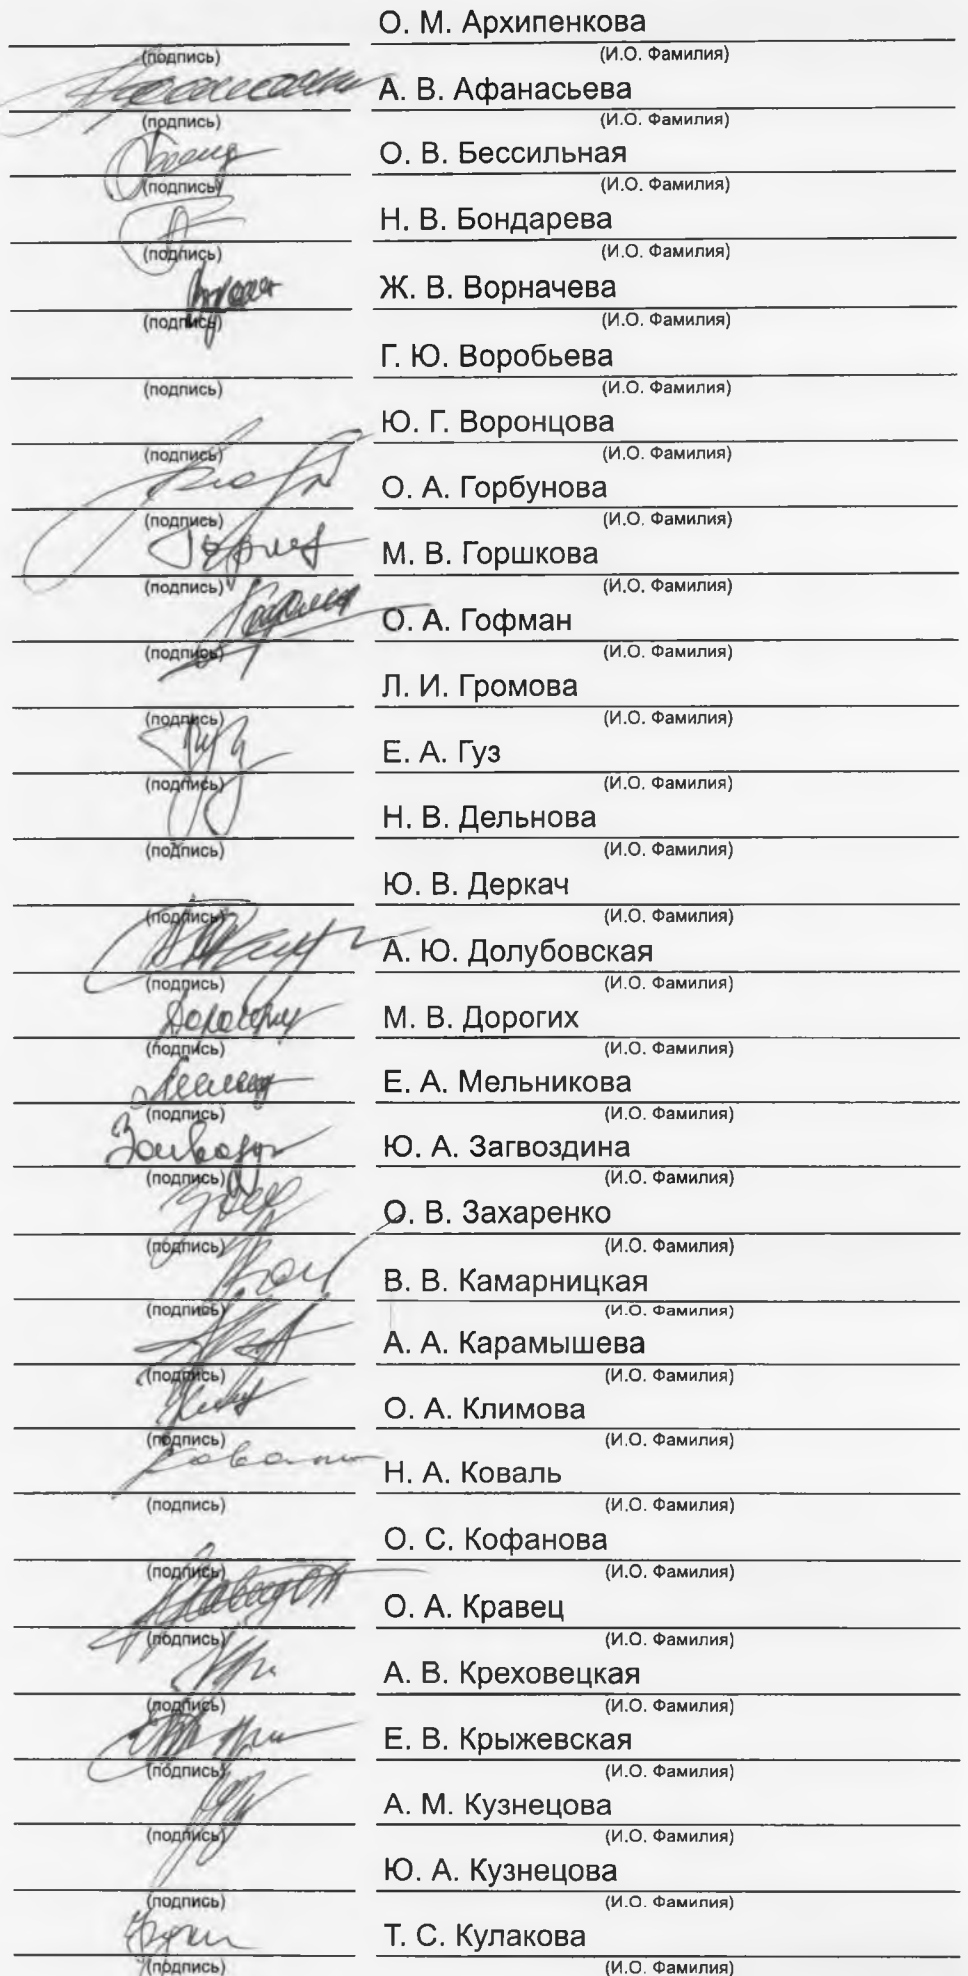 О. М. Архипенкова
(подпись) (И.О. Фамилия)
А. В. Афанасьева
(подпись) (И.О. Фамилия)
О. В. Бессильная
(подпись) (И.О. Фамилия)
Н. В. Бондарева
(подпись) (И.О. Фамилия)
Ж. В. Ворначева
(подпись) (И.О. Фамилия)
Г. Ю. Воробьева
(подпись) (И.О. Фамилия)
Ю. Г. Воронцова
(подпись) (И.О. Фамилия)
О. А. Горбунова
(подпись) (И.О. Фамилия)
М. В. Горшкова
(подпись) (И.О. Фамилия)
О. А. Гофман
(подпись) (И.О. Фамилия)
Л. И. Громова
(подпись) (И.О. Фамилия)
Е. А. Гуз
(подпись) (И.О. Фамилия)
Н. В. Дельнова
(подпись) (И.О. Фамилия)
Ю. В. Деркач
(подпись) (И.О. Фамилия)
А. Ю. Долубовская
(подпись) (И.О. Фамилия)
М. В. Дорогих
(подпись) (И.О. Фамилия)
Е. А. Мельникова
(подпись) (И.О. Фамилия)
Ю. А. Загвоздина
(подпись) (И.О. Фамилия)
О. В. Захаренко
(подпись) (И.О. Фамилия)
В. В. Камарницкая
(подпись) (И.О. Фамилия)
А. А. Карамышева
(подпись) (И.О. Фамилия)
О. А. Климова
(подпись) (И.О. Фамилия)
Н. А. Коваль
(подпись) (И.О. Фамилия)
О. С. Кофанова
(подпись) (И.О. Фамилия)
О. А. Кравец
(подпись) (И.О. Фамилия)
А. В. Креховецкая
(подпись) (И.О. Фамилия)
Е. В. Крыжевская
(подпись) (И.О. Фамилия)
А. М. Кузнецова
(подпись) (И.О. Фамилия)
Ю. А. Кузнецова
(подпись) (И.О. Фамилия)
Т. С. Кулакова
(подпись) (И.О. Фамилия)